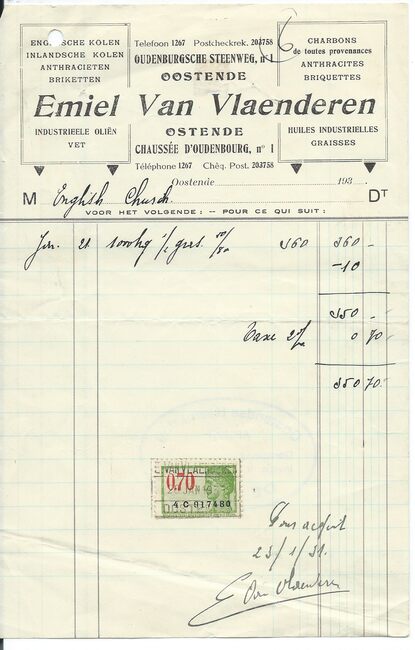 6
ENGELSCHE KOLEN
INLANDSCHE KOLEN
ANTHRACIETEN
BRIKETTEN
Telefoon 1267 Postcheckrek. 203758
OUDENBURGSCHE STEENWEG, nr 1
OOSTENDE
CHARBONS
de toutes provenances
ANTHRACITES
BRIQUETTES
Emiel Van Vlaenderen
INDUSTRIEELE OLIËN
VET
OSTENDE
CHAUSSÉE D'OUDENBOURG, n° 1
Téléphone 1267 Chèq. Post. 203758
HUILES INDUSTRIELLES
GRAISSES
Oostende 193
M English Church DT
VOOR HET VOLGENDE: -- POUR CE QUI SUIT:
Jan. 21 1000kg 360 360 -
-10
350 -
Taxe 2 0 70
350 70
E. VAN VLAE
0.70
4 C 917480
Pour acquit
23/1/31.
E Van Vlaenderen